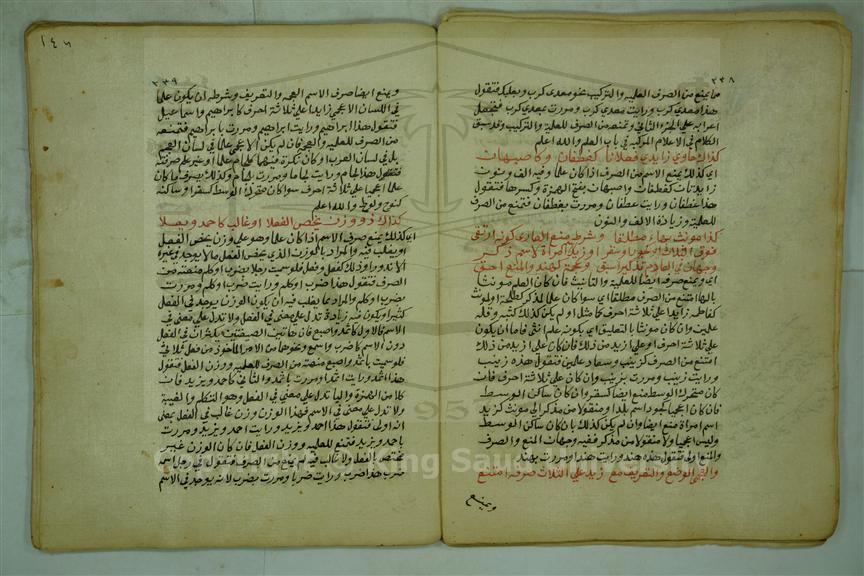 ٢٣٨
مما يمنع من الصرف العلمية والتركيب نحو معدي كرب وبعلبك فتقول
هذا معدي كرب ورايت معدي كرب ومررت بمعدي كرب فتجعل
اعرابه على الجزء الثاني وتمنعه من الصرف للعلمية والتركيب وقد سبق
الكلام في الاعلام المركبة في باب العلم والله اعلم
كذاك حاوي زايدي فعلانا كغطفان وكاصبهانا
اي كذلك يمنع الاسم من الصرف اذا كان علما وفيه الف ونون
زايدتان كغطفان واصبهان بفتح الهمزة وكسرها فتقول
هذا غطفان ورايت غطفان ومررت بغطفان فتمنع من الصرف
للعلمية وزيادة الالف والنون
كذا مونث بهاء مطلقا وشرط منع العار كونه ارتقى
فوق الثلاث او كجور او سقر او زيد اسم امراة لا اسم ذكر
وجهان في العادم تذكيرا سبق وعجمة كهند والمنع احق
اي ويمنع صرفه ايضا للعلمية والتانيث فان كان العلم مونثا
بالهاء امتنع من الصرف مطلقا اي سوا كان علما لمذكر كطلحة او لمونث
كفاطمة زايدا على ثلاثة احرف كما مثل او لم يكن كذلك كثبة وقلة
علمين وان كان مونثا بالتعليق اي بكونه علم انثى فاما ان يكون
على ثلاثة احرف او على ازيد من ذلك فان كان على ازيد من ذلك
امتنع من الصرف كزينب وسعاد علمين فتقول هذه زينب
ورايت زينب ومررت بزينب وان كان على ثلاثة احرف فان
كان متحرك الوسط منع ايضا كسقر وان كان ساكن الوسط
فان كان اعجميا كجور اسم بلد او منقولا من مذكر الى مونث كزيد
اسم امراة منع ايضا وان لم يكن كذلك بان كان ساكن الوسط
وليس اعجميا ولا منقولا من مذكر ففيه وجهان المنع والصرف
والمنع اولى فتقول هذه هند ورايت هند ومررت بهند
والعجمي الوضع والتعريف مع زيد على الثلاث صرفه امتنع
ويمنع
١٤٦
٢٣٩
ويمنع ايضا صرف الاسم العجمة والتعريف وشرطه ان يكون علما
في اللسان الاعجمي زايدا على ثلاثة احرف كابراهيم واسماعيل
فتقول هذا ابراهيم ورايت ابراهيم ومررت بابراهيم فتمنعه
من الصرف للعلمية والعجمة فان لم يكن الاعجمي علما في لسان العجم
بل في لسان العرب او كان نكرة فيهما كلجام علما او غير علم صرفته
فتقول هذا لجام ورايت لجاما ومررت بلجام وكذلك يصرف ما كان
علما اعجميا على ثلاثة احرف سوا كان متحرك الوسط كشتر او ساكنه
كنوح ولوط والله اعلم
كذاك ذو وزن يخص الفعلا او غالب كاحمد ويعلا
اي كذلك يمنع صرف الاسم اذا كان علما وهو على وزن يخص الفعل
او يغلب فيه والمراد بالوزن الذي يخص الفعل ما لا يوجد في غيره
الا ندورا وذلك كفعل وفعل فلو سميت رجلا بضرب او كلم منعته من
الصرف فتقول هذا ضرب او كلم ورايت ضرب او كلم ومررت
بضرب او كلم والمراد بما يغلب فيه ان يكون الوزن يوجد في الفعل
كثيرا او يكون فيه زيادة تدل على معنى في الفعل ولا تدل على معنى في
الاسم فالاول كاثمد واصبع فان هاتين الصيغتين يكثران في الفعل
دون الاسم كاضرب واسمع ونحوهما من الامر الماخوذ من فعل ثلاثي
فلو سميت باثمد واصبع منعته من الصرف للعلمية ووزن الفعل فتقول
هذا اثمد ورايت اثمد ومررت باثمد والثاني كاحمد ويزيد فان
كلا من الهمزة والياء تدل على معنى في الفعل وهو التكلم والغيبة
ولا تدل على معنى في الاسم فهذا الوزن وزن غالب في الفعل بمعنى
انه اولى فتقول هذا احمد ويزيد ورايت احمد ويزيد ومررت
باحمد ويزيد فتمنع للعلمية ووزن الفعل فان كان الوزن غير
مختص بالفعل ولا غالب فيه لم يمنع من الصرف فتقول في رجل اسمه
ضرب هذا ضرب ورايت ضربا ومررت بضرب لانه يوجد في الاسم